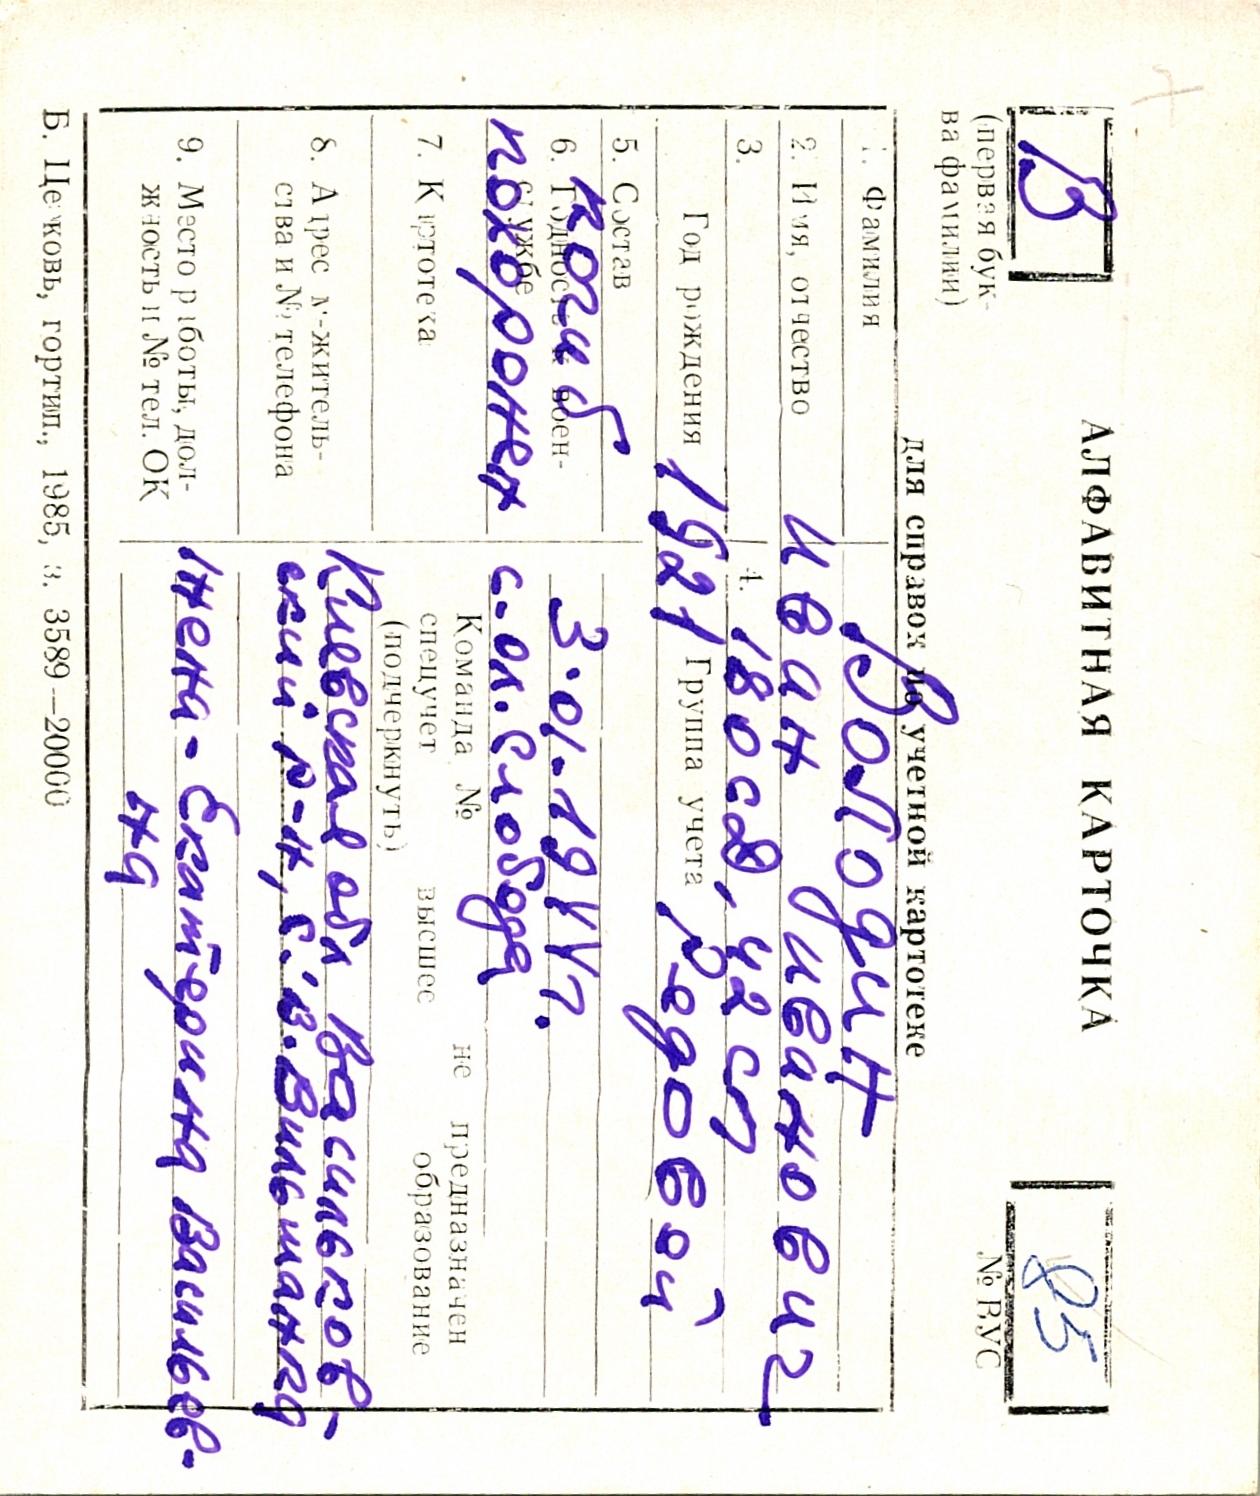 В
(первая бук-
ва фамилии)
АЛФАВИТНАЯ КАРТОЧКА
для справок по учетной картотеке
85
№ ВУС
1. Фамилия Володин
2. Имя, отчество Иван Иванович
3. 4. 180 сд, 42 сп
Год рождения 1921 Группа учета Рядовой
5. Состав
6. Годность к воен-
ной службе
погиб 3.01.1944 г.
похоронен с. ол. Слобода
7. Картотека
Команда № не предназначен
спецучет высшее образование
(подчеркнуть)
8. Адрес м-житель-
ства и № телефона
Киевская обл Васильков-
ский р-н, с. В. Вильшанка
9. Место работы, дол-
жность и № тел. ОК
жена - Екатерина Васильев-
на
Б. Церковь, гортип., 1985, з. 3589—20000